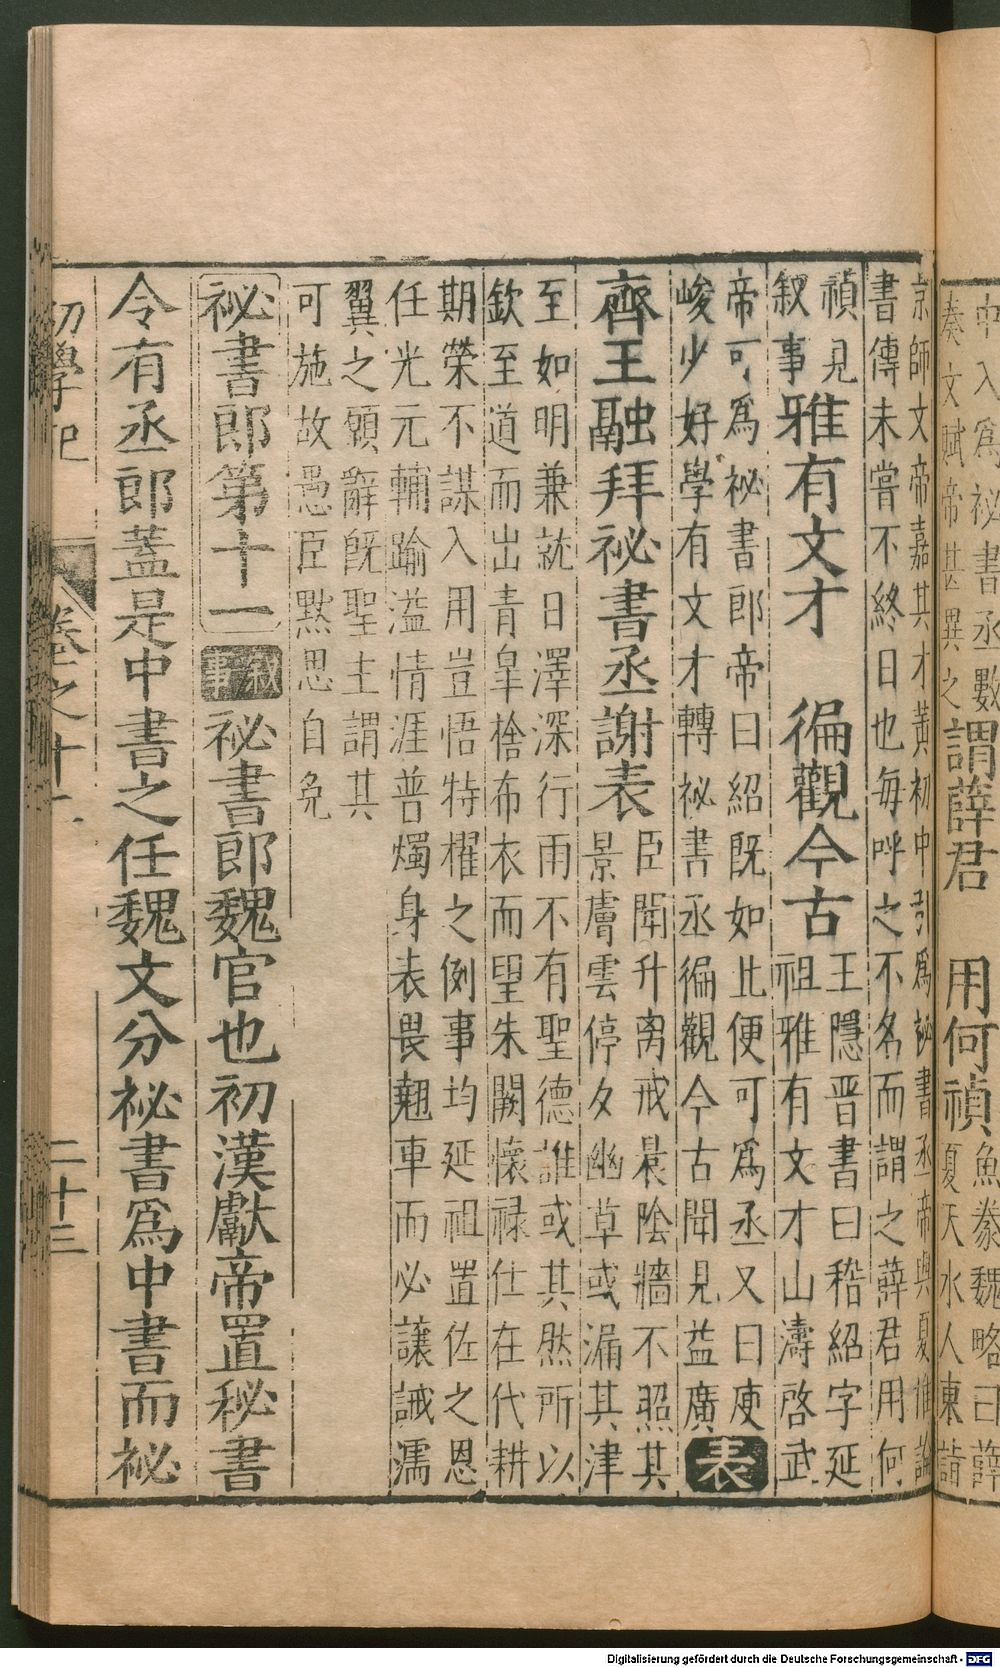 中入為祕書丞數
奏文賦帝甚異之
謂薛君
用何禎
魚豢魏略曰薛
夏天水人東詣
京師文帝嘉其才黃初中引為祕書丞帝與夏推論
書傳未嘗不終日也每呼之不名而謂之薛君用何
禎見
叙事
雅有文才
徧觀今古
王隱晉書曰嵇紹字延
祖雅有文才山濤啓武
帝可為祕書郎帝曰紹既如此便可為丞又曰庾
峻少好學有文才轉祕書丞徧觀今古聞見益廣
表
齊王融拜祕書丞謝表
臣聞升离戒晨陰牆不照其
景膚雲停夕幽草或漏其津
至如明兼就日澤深行雨不有聖德誰或其然所以
欽至道而出青皐捨布衣而望朱闕懷祿仕在代耕
期榮不謀入用豈悟特櫂之例事均延祖置佐之恩
任光元輔踰溢情涯普燭身表畏翹車而必讓誡濡
翼之領辭既聖主謂其
可施故愚臣黙思自免
祕書郎第十一
叙事
祕書郎魏官也初漢獻帝置秘書
令有丞郎蓋是中書之任魏文分祕書為中書而祕
初學記
卷之十二
二十三
Digitalisierung gefördert durch die Deutsche Forschungsgemeinschaft - DFG